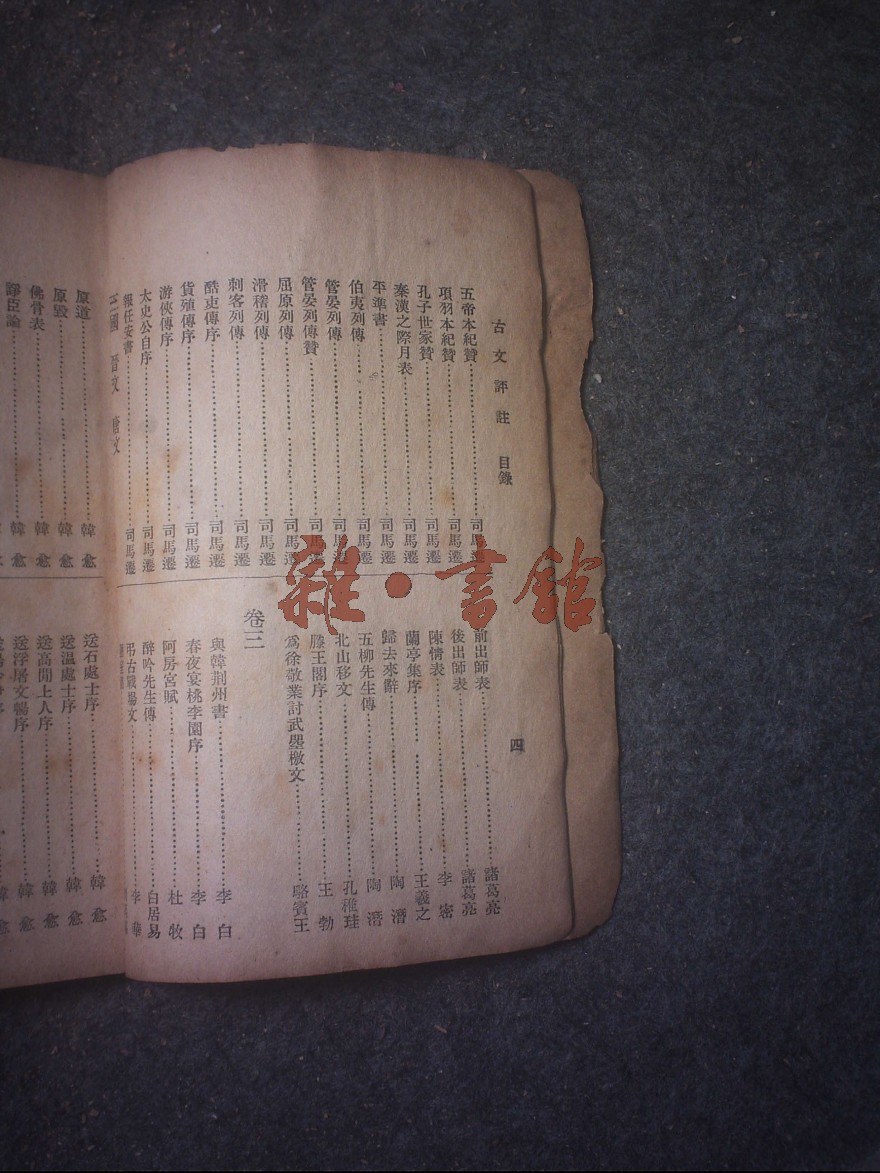 古文評註 目錄
四
五帝本紀贊 司馬遷
項羽本紀贊 司馬遷
孔子世家贊 司馬遷
秦漢之際月表 司馬遷
平準書 司馬遷
伯夷列傳 司馬遷
管晏列傳 司馬遷
管晏列傳贊 司馬遷
屈原列傳 司馬遷
滑稽列傳 司馬遷
刺客列傳 司馬遷
酷吏傳序 司馬遷
貨殖傳序 司馬遷
游俠傳序 司馬遷
太史公自序 司馬遷
報任安書 司馬遷
三國 晉文 唐文
前出師表 諸葛亮
後出師表 諸葛亮
陳情表 李密
蘭亭集序 王羲之
歸去來辭 陶潛
五柳先生傳 陶潛
北山移文 孔稚珪
滕王閣序 王勃
爲徐敬業討武曌檄文 駱賓王
卷三
與韓荆州書 李白
春夜宴桃李園序 李白
阿房宮賦 杜牧
醉吟先生傳 白居易
弔古戰場文 李華
原道 韓愈
原毀 韓愈
佛骨表 韓愈
諍臣論 韓愈
送石處士序 韓愈
送温處士序 韓愈
送高閒上人序 韓愈
送浮屠文暢序 韓愈
雜·書館